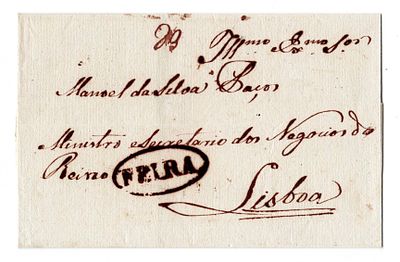 Illmo Exmo Sor
Manoel da Silva Paços
Ministro e Secretario dos Negocios do
Reino FEIRA
Lisboa